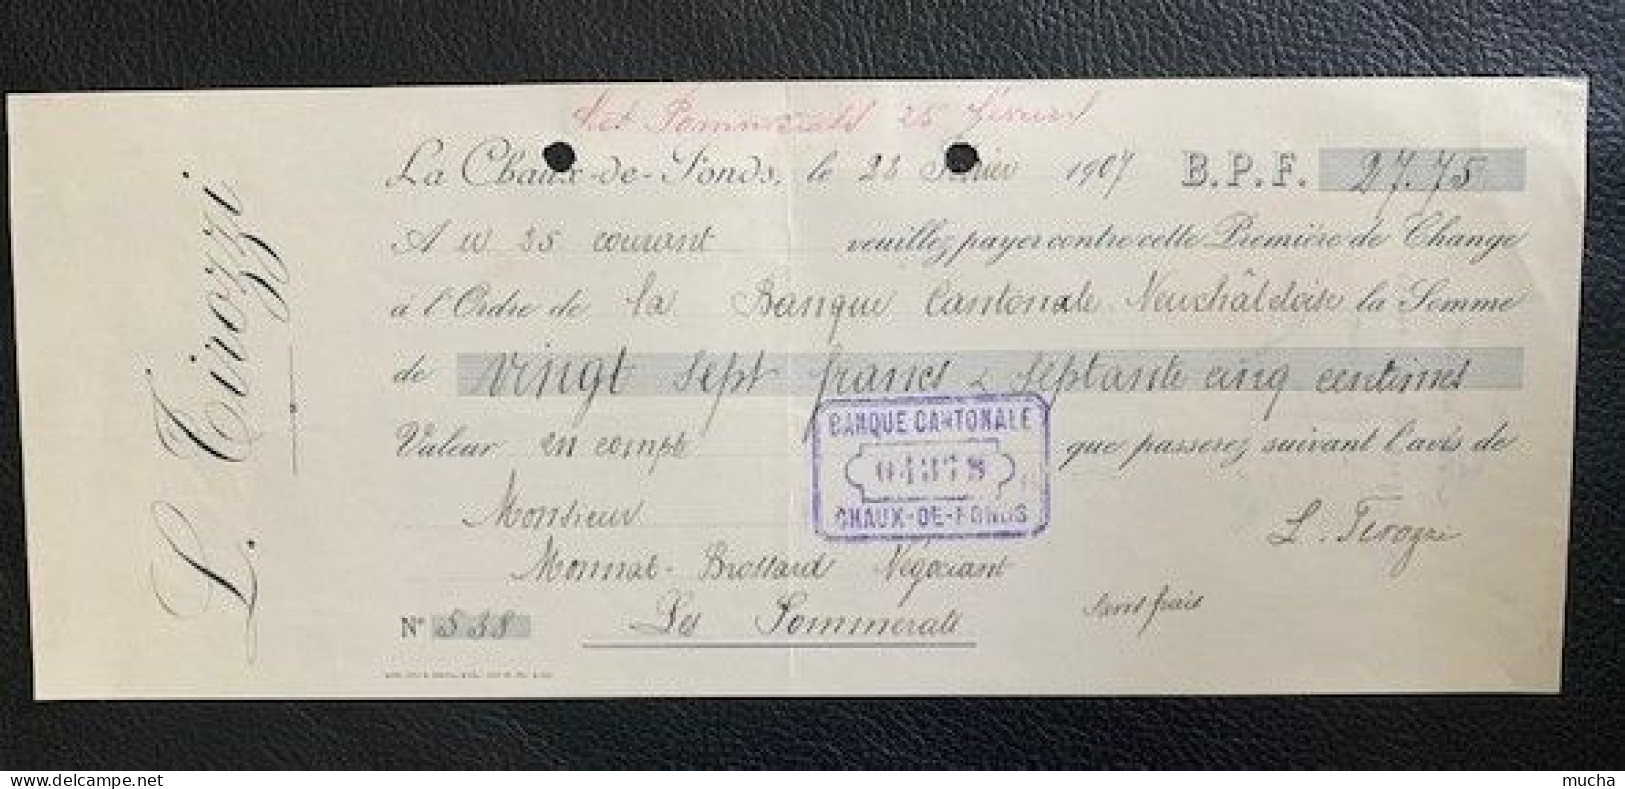 L. Tirozzi
Les Pommerats 25 février
La Chaux-de-Fonds, le février 1907 B.P.F. 27.75
Au 25 courant veuillez payer contre cette Première de Change
à l'Ordre de la Banque Cantonale Neuchâteloise la Somme
de vingt sept francs & septante cinq centimes
Valeur en compte que passerez suivant l'avis de
BANQUE CANTONALE
CHAUX-DE-FONDS
Monsieur
L. Tirozzi
Monnat-Brossard Négociant
Nº 538 Les Pommerats
sans frais
www.delcampe.net
mucha